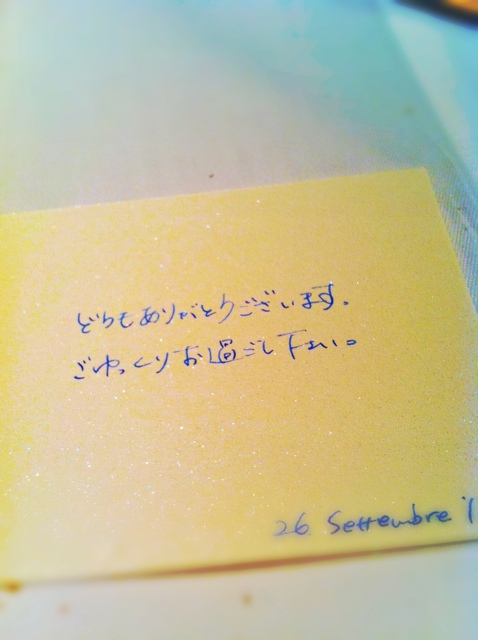 どうもありがとうございます。
ごゆっくりお過ごし下さい。
26 Settembre '1